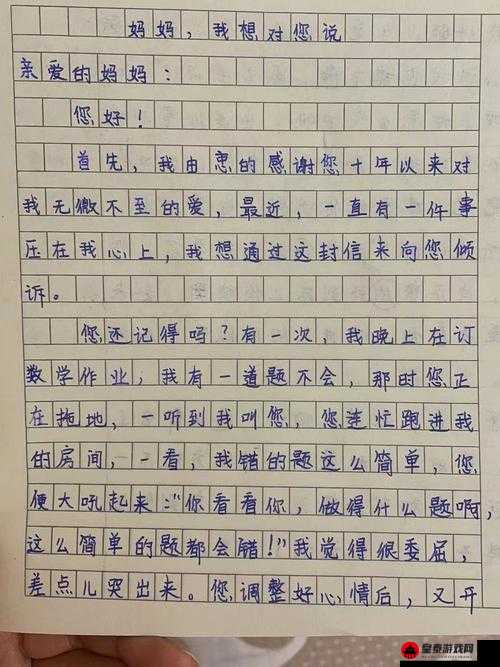 妈妈，我想对您说
亲爱的妈妈：
您好！
首先，我由衷的感谢您十年以来对
我无微不至的爱，最近，一直有一件事
压在我心上，我想通过这封信来向您倾
诉。
您还记得吗？有一次，我晚上在订
数学作业，我有一道题不会，那时您正
在拖地，一听到我叫您，您连忙跑进我
的房间，一看，我错的题这么简单，您
便大吼起来："你看看你，做得什么题啊，
这么简单的题都会错！"我觉得很委屈，
差点儿哭出来。您调整好心情后，又开
皇泰游戏网